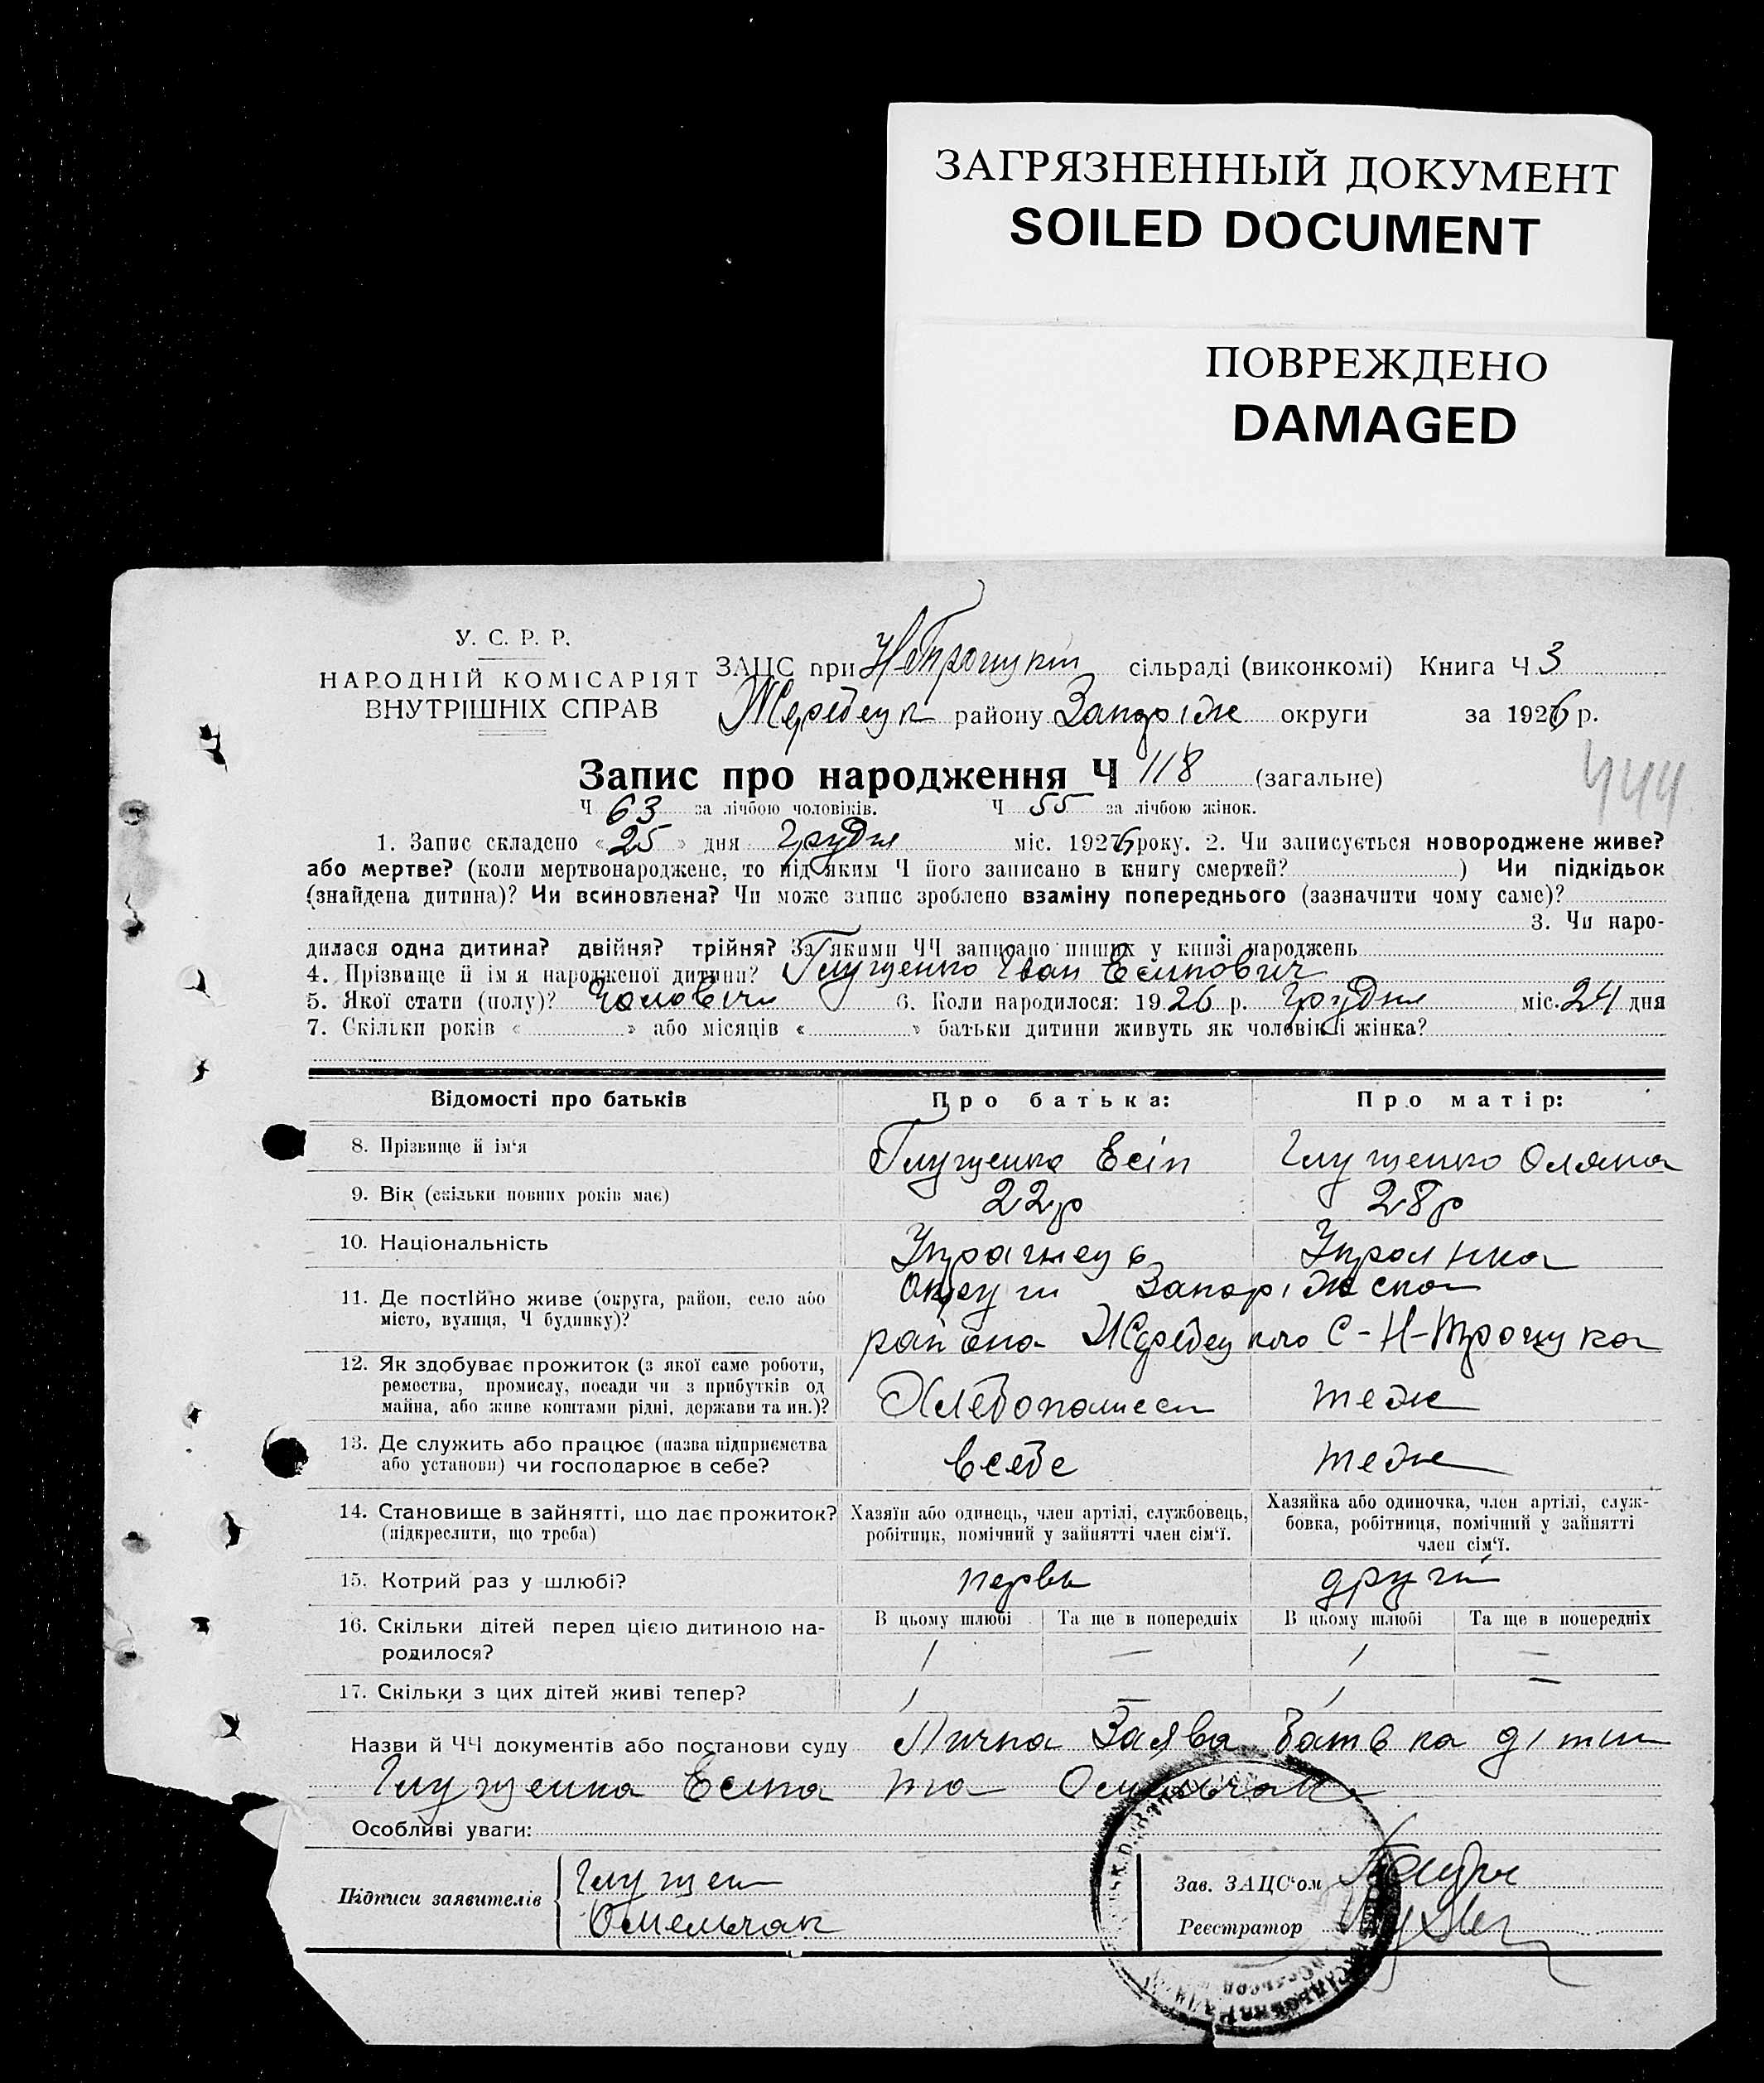 ЗАГРЯЗНЕННЫЙ ДОКУМЕНТ
SOILED DOCUMENT
ПОВРЕЖДЕНО
DAMAGED
У. С. Р. Р.
НАРОДНІЙ КОМІСАРІЯТ
ВНУТРІШНІХ СПРАВ
ЗАЦС при сільраді (виконкомі) Книга Ч 3
Жеребецк району Запоріж округи за 1926 р.
Запис про народження Ч 118 (загальне)
444
Ч 63 за лічбою чоловіків. Ч 55 за лічбою жінок.
1. Запис складено «25» дня Грудня міс. 1926 року. 2. Чи записується новороджене живе?
або мертве? (коли мертвонароджене, то під яким Ч його записано в книгу смертей? ) Чи підкідьок
(знайдена дитина)? Чи всиновлена? Чи може запис зроблено взаміну попереднього (зазначити чому саме)?
3. Чи наро-
дилася одна дитина? двійня? трійня? За якими ЧЧ записано инших у книзі народжень
4. Прізвище й ім'я народженої дитини? Глущенко Іван Есипович
5. Якої стати (полу)? Чоловічи 6. Коли народилося: 1926 р. Грудня міс. 24 дня
7. Скільки років « » або місяців « » батьки дитини живуть як чоловік і жінка?
Відомості про батьків Про батька: Про матір:
8. Прізвище й ім'я Глущенко Есіп Глущенко Оляна
9. Вік (скільки повних років має) 22р 28р
10. Національність Украінець Украінка
11. Де постійно живе (округа, район, село або Округи Запоріжска
місто, вулиця, Ч будинку)? района Жеребецкаго С-Н-Троцука
12. Як здобуває прожиток (з якої саме роботи,
ремества, промислу, посади чи з прибутків од
майна, або живе коштами рідні, держави та ин.)? теж
13. Де служить або працює (назва підприємства
або установи) чи господарює в себе? всебе теж
14. Становище в зайнятті, що дає прожиток? Хазяїн або одинець, член артілі, службовець, Хазяйка або одиночка, член артілі, служ-
(підкреслити, що треба) робітник, помічний у зайнятті член сім'ї. бовка, робітниця, помічний у зайнятті
член сім'ї.
15. Котрий раз у шлюбі? первы другій
16. Скільки дітей перед цією дитиною на- В цьому шлюбі Та ще в попередніх В цьому шлюбі Та ще в попередніх
родилося? 1 — 1 —
17. Скільки з цих дітей живі тепер? 1 — 1 —
Назви й ЧЧ документів або постанови суду Лична Заява батька діти
Глущенка Есипа та Омельчак
Особливі уваги:
Підписи заявителів Глущен Зав. ЗАЦС'ом
Омельчак Реєстратор